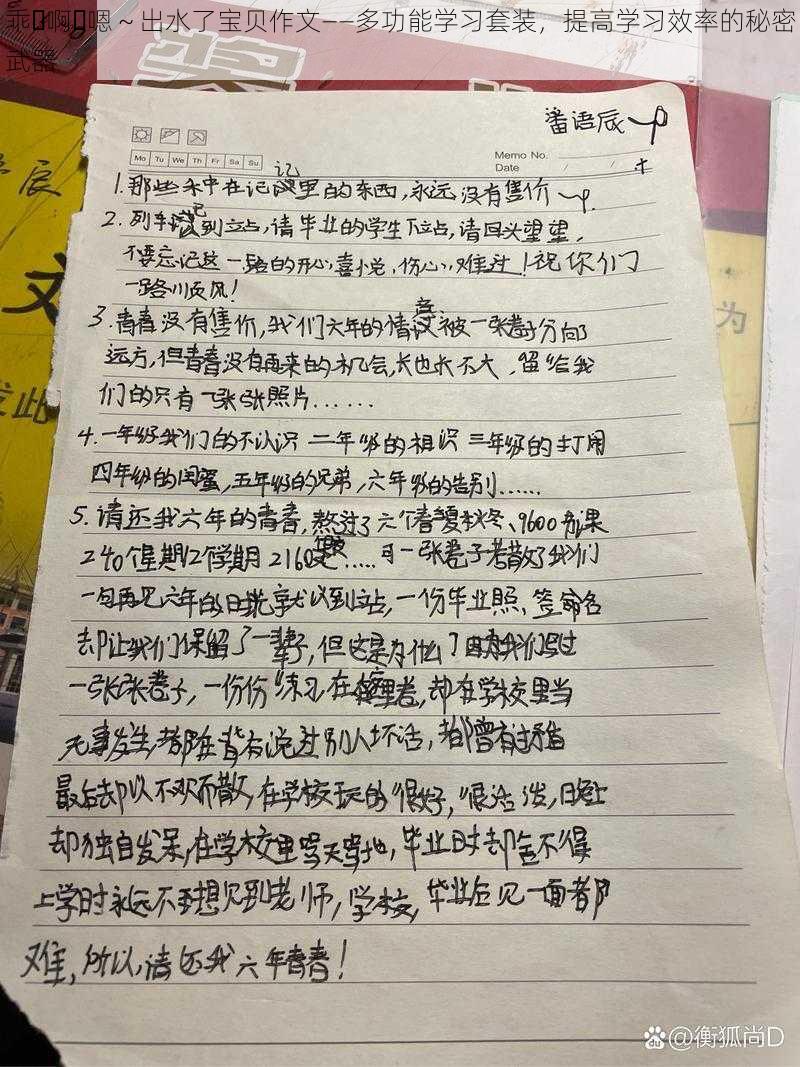 乖啊嗯～出水了宝贝作文——多功能学习套装，提高学习效率的秘密
武器
番语辰
Memo No.
Mo Tu We Th Fr Sa Su
Date / /
记
1.那些 中在记 里的东西,永远没有售价
2.列车 到立占,请毕业的学生下立占,请回头望望,
不要忘记这一路的开心,喜悦,伤心,难过!祝你们
一路川页风!
3.青春没有售价,我们六年的情 被一张卷子分向
远方,但青春没有再来的机会,长也长不大,留给我
们的只有一张张照片......
4.一年级我们的不认识 二年级的相识 三年级的打闹
四年级的闺蜜,五年级的兄弟,六年级的告别......
5.请还我六年的青春,熬过了六个春夏秋冬、9600 课
240个星期12个学期2160 ..... 一张卷子 散了我们
一句再见六年的 立占,一份毕业照,签 名
却让我们保留了一辈子,但这是为什么?因为我们 过
一张张卷子,一份份练习,在 里 ,却在学校里当
无事发生,都在背后说过别人坏话,都曾有过矛盾
最后却以不欢而散,在学校玩的很好,很活泼,日晚上
却独自发呆,在学校里骂天骂地,毕业时却舍不得
上学时永远不 想见到老师,学校,毕业后见一面都
难,所以,请还我六年青春!
@衡狐尚D